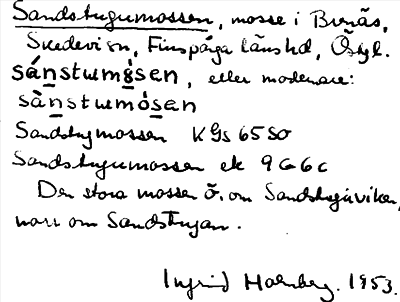 Sandstugumossen, mosse i Burås,
Skedevi sn, Finspånga länshd, Östgl.
sánstumòsen, eller modernare:
sànstumósen
Sandstugmossen KGs 65 SO
Sandstugumossen ek 9G6c
Den stora mossen ö. om Sandstuguviken,
norr om Sandstugan.
Ingrid Holmberg. 1953.